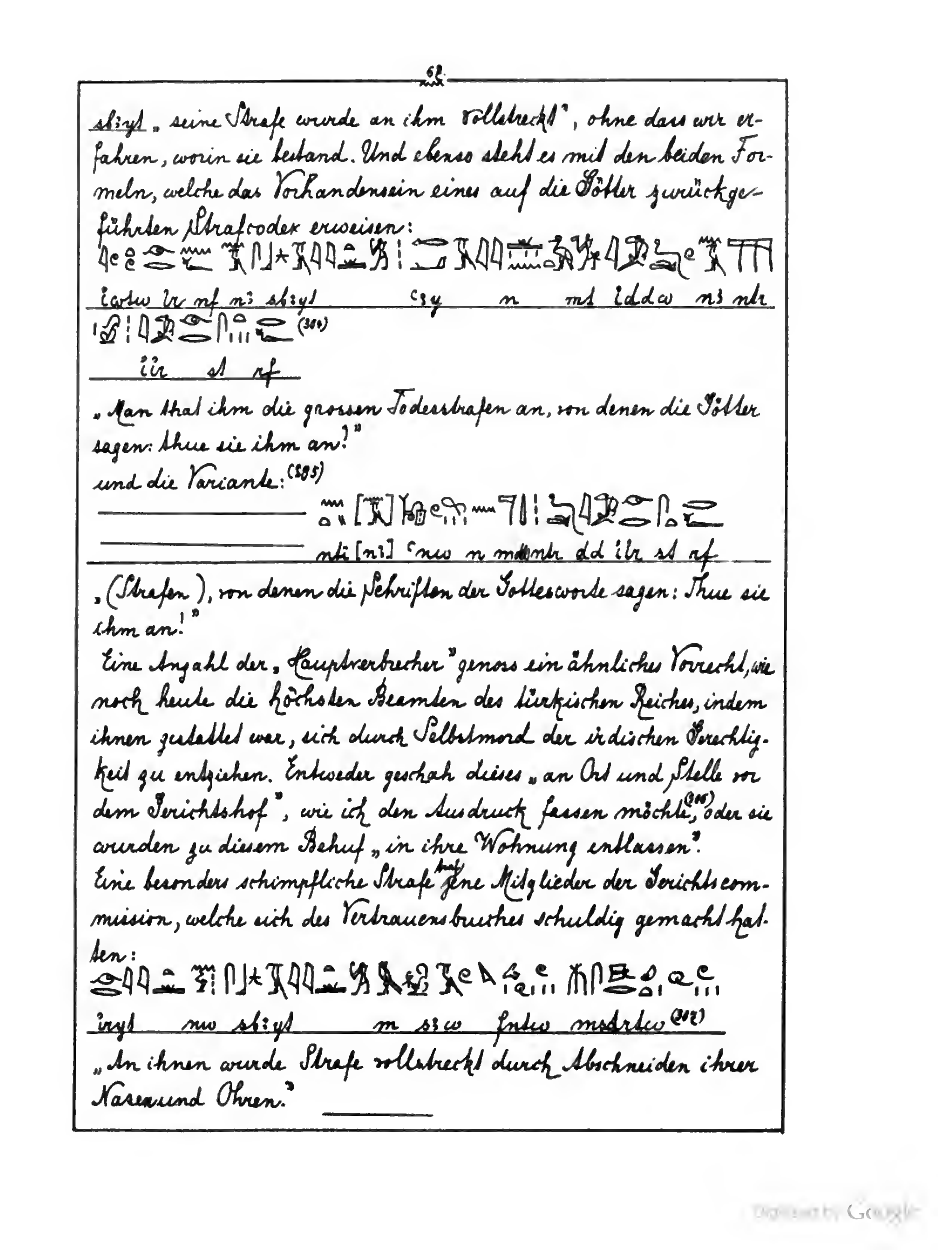 68.
sbꜣyt „seine Strafe wurde an ihm vollstreckt", ohne dass wir er-
fahren, worin sie bestand. Und ebenso steht es mit den beiden For-
meln, welche das Vorhandensein eines auf die Götter zurückge-
führten Strafcodex erweisen:
iwtw ir nf nꜣ sbꜣyt ꜥꜣy n mt iddw nꜣ ntr
(304)
iir st rf
„Man that ihm die grossen Todesstrafen an, von denen die Götter
sagen: thue sie ihm an!"
und die Variante: (305)
nti [nꜣ] ꜥnw n mdwntr dd iir st rf
„(Strafen), von denen die Schriften der Gottesworte sagen: Thue sie
ihm an!"
Eine Anzahl der „Hauptverbrecher" genoss ein ähnliches Vorrecht, wie
noch heute die höchsten Beamten des türkischen Reiches, indem
ihnen gestattet war, sich durch Selbstmord der irdischen Gerechtig-
keit zu entziehen. Entweder geschah dieses „an Ort und Stelle vor
dem Gerichtshof", wie ich den Ausdruck fassen möchte, (306) oder sie
wurden zu diesem Behuf „in ihre Wohnung entlassen".
Eine besonders schimpfliche Strafe traf jene Mitglieder der Gerichtscom-
mission, welche sich des Vertrauensbruches schuldig gemacht hat-
ten:
iryt nw sbꜣyt m sꜣw fntw msdrtw (307)
„An ihnen wurde Strafe vollstreckt durch Abschneiden ihrer
Nasen und Ohren."
Digitized by Google